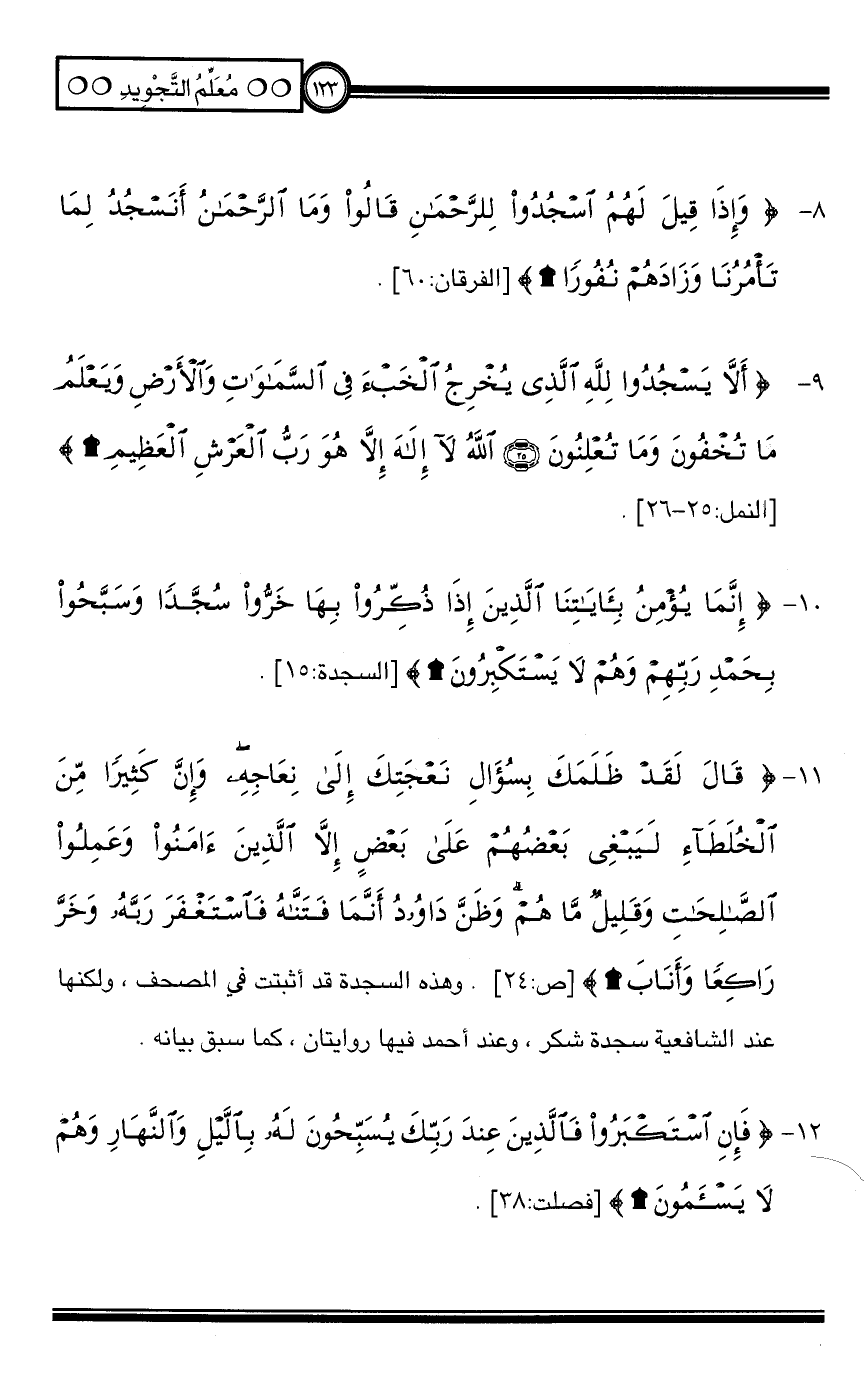 ○○ مُعَلِّمُ التَّجْوِيدِ ○○ ١٢٣
٨- ﴿ وَإِذَا قِيلَ لَهُمُ ٱسْجُدُوا۟ لِلرَّحْمَـٰنِ قَالُوا۟ وَمَا ٱلرَّحْمَـٰنُ أَنَسْجُدُ لِمَا
تَأْمُرُنَا وَزَادَهُمْ نُفُورًا ۩ ﴾ [الفرقان:٦٠] .
٩- ﴿ أَلَّا يَسْجُدُوا لِلَّهِ ٱلَّذِى يُخْرِجُ ٱلْخَبْءَ فِى ٱلسَّمَـٰوَٰتِ وَٱلْأَرْضِ وَيَعْلَمُ
مَا تُخْفُونَ وَمَا تُعْلِنُونَ ٢٥ ٱللَّهُ لَآ إِلَـٰهَ إِلَّا هُوَ رَبُّ ٱلْعَرْشِ ٱلْعَظِيمِ ۩ ﴾
[النمل:٢٥-٢٦] .
١٠- ﴿ إِنَّمَا يُؤْمِنُ بِـَٔايَـٰتِنَا ٱلَّذِينَ إِذَا ذُكِّرُوا۟ بِهَا خَرُّوا۟ سُجَّدًا وَسَبَّحُوا۟
بِحَمْدِ رَبِّهِمْ وَهُمْ لَا يَسْتَكْبِرُونَ ۩ ﴾ [السجدة:١٥] .
١١- ﴿ قَالَ لَقَدْ ظَلَمَكَ بِسُؤَالِ نَعْجَتِكَ إِلَىٰ نِعَاجِهِۦ ۖ وَإِنَّ كَثِيرًا مِّنَ
ٱلْخُلَطَآءِ لَيَبْغِى بَعْضُهُمْ عَلَىٰ بَعْضٍ إِلَّا ٱلَّذِينَ ءَامَنُوا۟ وَعَمِلُوا۟
ٱلصَّـٰلِحَـٰتِ وَقَلِيلٌ مَّا هُمْ ۗ وَظَنَّ دَاوُۥدُ أَنَّمَا فَتَنَّـٰهُ فَٱسْتَغْفَرَ رَبَّهُۥ وَخَرَّ
رَاكِعًا وَأَنَابَ ۩ ﴾ [ص:٢٤] . وهذه السجدة قد أثبتت في المصحف ، ولكنها
عند الشافعية سجدة شكر ، وعند أحمد فيها روايتان ، كما سبق بيانه .
١٢- ﴿ فَإِنِ ٱسْتَكْبَرُوا۟ فَٱلَّذِينَ عِندَ رَبِّكَ يُسَبِّحُونَ لَهُۥ بِٱلَّيْلِ وَٱلنَّهَارِ وَهُمْ
لَا يَسْـَٔمُونَ ۩ ﴾ [فصلت:٣٨] .